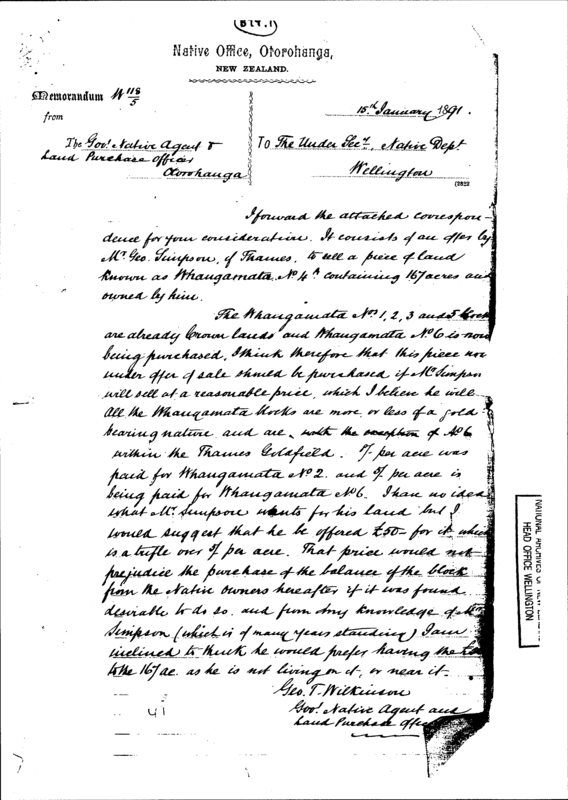 B14.1
Native Office, Otorohanga,
NEW ZEALAND.
Memorandum N 118/5
from
The Govt. Native Agent &
Land Purchase Officer
Otorohanga
15th January, 1891.
To The Under Secy., Native Dept
Wellington
I forward the attached correspon-
dence for your consideration. It consists of an offer by
Mr. Geo. Simpson, of Thames, to sell a piece of land
known as Whangamata No. 4A containing 167 acres and
owned by him.
The Whangamata Nos. 1, 2, 3 and 5 blocks
are already Crown lands and Whangamata No. 6 is now
being purchased, I think therefore that this piece now
under offer of sale should be purchased if Mr. Simpson
will sell at a reasonable price, which I believe he will.
All the Whangamata blocks are more or less of a gold-
bearing nature and are, with the exception of No. 6
within the Thames Goldfield. per acre was
paid for Whangamata No. 2 and per acre is
being paid for Whangamata No. 6. I have no idea
what Mr. Simpson wants for his land but I
would suggest that he be offered £50- for it which
is a trifle over per acre. That price would not
prejudice the purchase of the balance of the block
from the Native owners hereafter if it was found
desirable to do so. and from my knowledge of Mr.
Simpson (which is of many years standing) I am
inclined to think he would prefer having the
to the 167 ac. as he is not living on it, or near it.
Geo. T. Wilkinson
Govt. Native Agent and
Land Purchase Officer
41
NATIONAL ARCHIVES OF NEW ZEALAND
HEAD OFFICE WELLINGTON